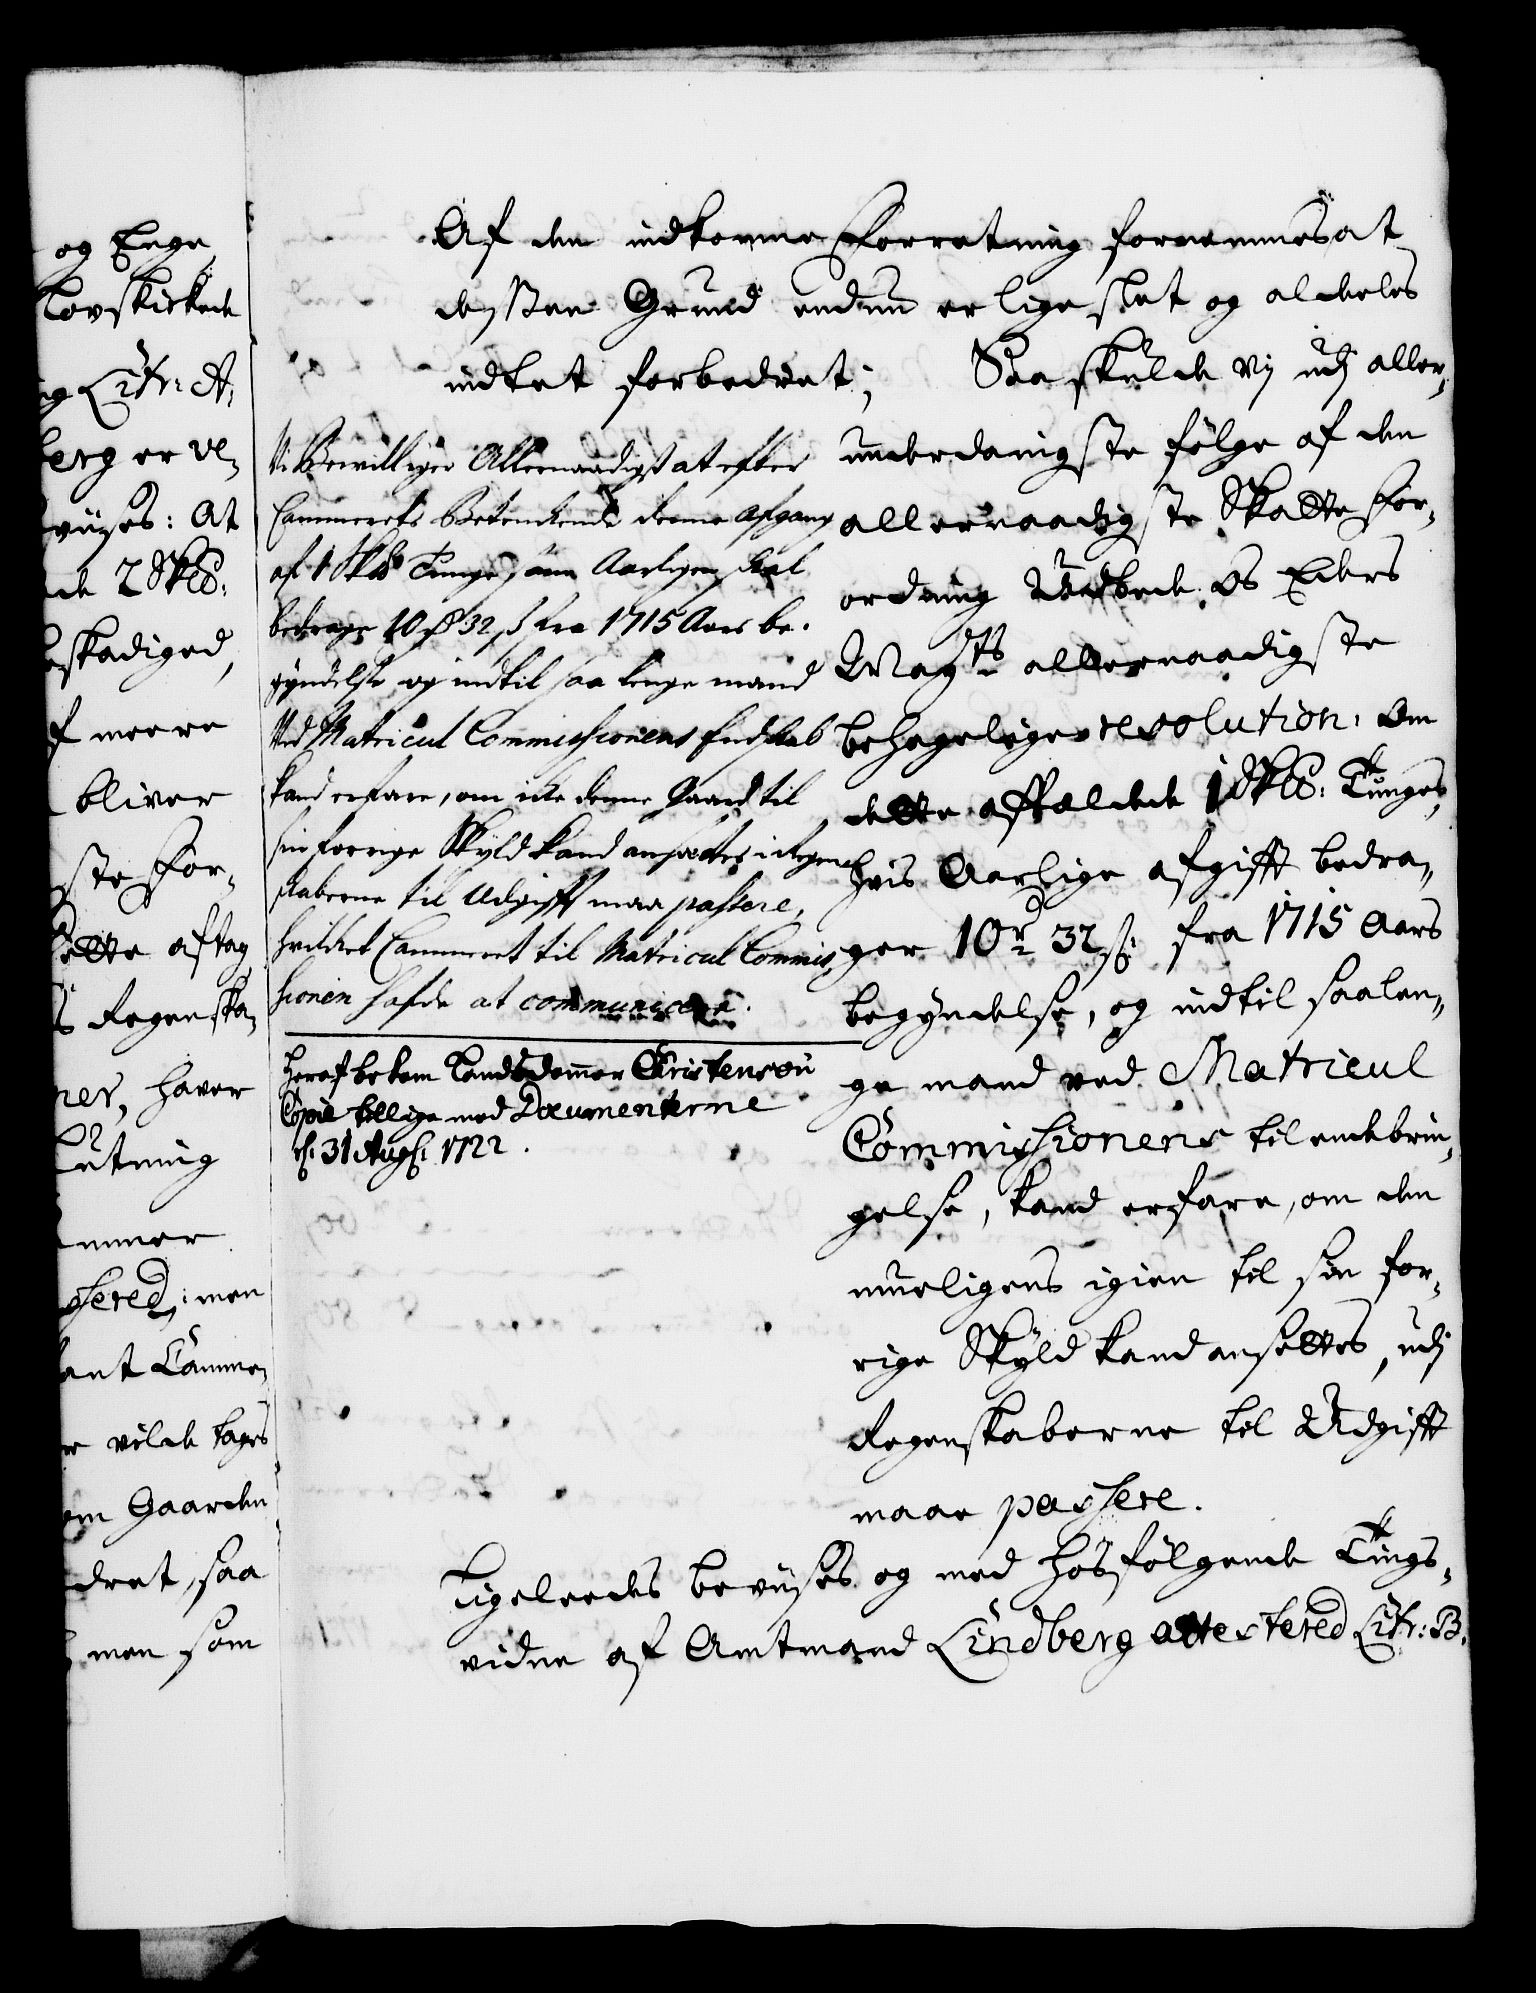 og Enge
Lovskickede
og Litr: A:
berg er be¬
vüses: At
de 2 Sklb:
beskadiged,
meere
bliver
ste For¬
dette aftag
Regenska¬
haver
Lütning
ammer
men
Camme¬
vilde tages
om Gaarden
dret, saa
men som
Af den indkomne Forretning fornemmes at
dessen Grund endnu er lige slet og aldeeles
indtet forbedret; Saa skulde vj udj aller¬
underdanigste følge af den
allernaadigste Skatte For¬
ordning Udbede Os Eders
Maytts allernaadigste
behagelige resolution: Om
dette affældede 1 Sklb: Tunges,
hvis Aarlige afgifft bedra¬
ger 10 rd 32 ß: fra 1715 Aars
begyndelse, og indtil saalen¬
ge mand ved Matricul
Commissionens til endebrin¬
gelse, kand erfare, om den
mueligens igien til sin for¬
rige Skyld kand ansettes, udj
Regenskaberne til Udgifft
maae passere.
Vi Bevilliger Allernaadigst at efter
Cammerets Betenkende denne Afgang
af 1 Sklb Tunge som Aarligen skal
bedrage 10 rd 32 ß fra 1715 Aars be¬
gyndelse og indtil saa lenge mand
Ved Matricul Commissionens Endskab
kand erfare, om icke denne Gaard til
sin forrige Skyld kand ansættes, i Regen
skaberne til Udgifft maa passere,
hvilcket Cammeret til Matricul Commis
sionen hafde at communicere.
Heraf bekom Landsdommer Christensøn
Copie tillige med Documenterne
d: 31 Aug: 1722.
Ligeleedes bevüses og med hosfølgende Tings¬
vidne af Amtmand Lindberg attestered Litr: B.